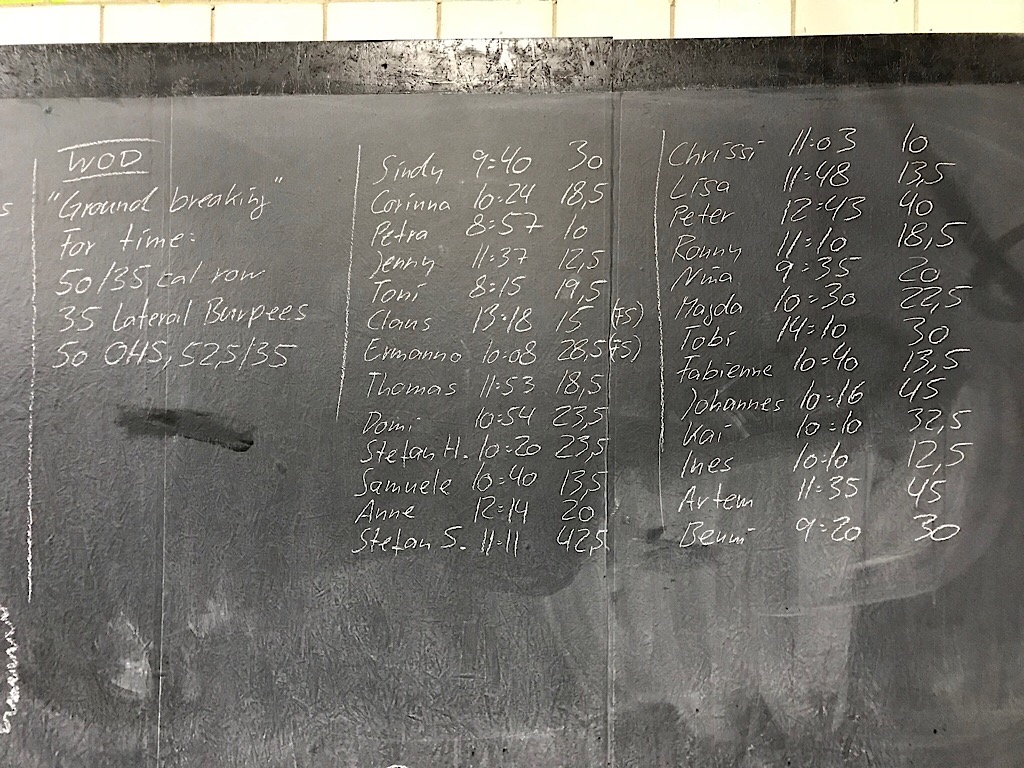 WOD
"Ground breaking"
For time:
50/35 cal row
35 Lateral Burpees
50 OHS, 52,5/35
Sindy 9:40 30
Corinna 10:24 18,5
Petra 8:57 10
Jenny 11:37 12,5
Toni 8:15 19,5
Claus 13:18 15 (FS)
Ermanno 10:08 28,5 (FS)
Thomas 11:53 18,5
Domi 10:54 23,5
Stefan H. 10:20 23,5
Samuele 10:40 13,5
Anne 12:14 20
Stefan S. 11:11 42,5
Chrissi 11:03 10
Lisa 11:48 13,5
Peter 12:43 40
Ronny 11:10 18,5
Nina 9:35 20
Magda 10:30 22,5
Tobi 14:10 30
Fabienne 10:40 13,5
Johannes 10:16 45
Kai 10:10 32,5
Ines 10:10 12,5
Artem 11:35 45
Benni 9:20 30